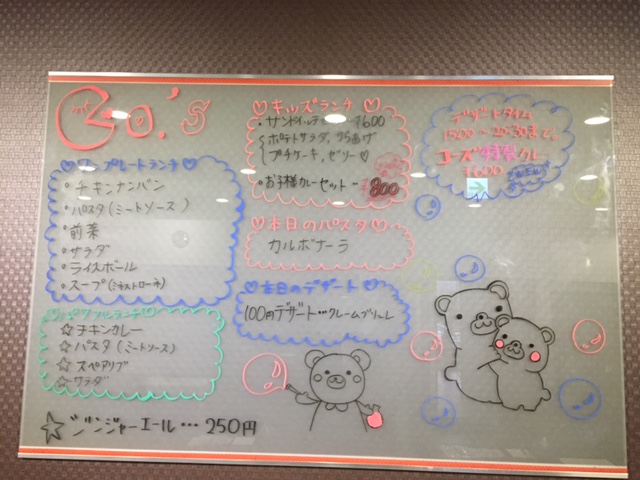 Go.'s
ワンプレートランチ
・チキンナンバン
・パスタ(ミートソース)
・前菜
・サラダ
・ライスボール
・スープ(ミネストローネ)
パワフルランチ
☆チキンカレー
☆パスタ(ミートソース)
☆スペアリブ
☆サラダ
☆ジンジャーエール…250円
キッズランチ
¥600
ポテトサラダ、からあげ
プチケーキ、ゼリー♡
・お子様カレーセット…800
本日のパスタ
カルボナーラ
本日のデザート
100円デザート…クレームブリュレ
デザートタイム
15:00~20:30まで。
ゴーズ特製クレープ
¥600